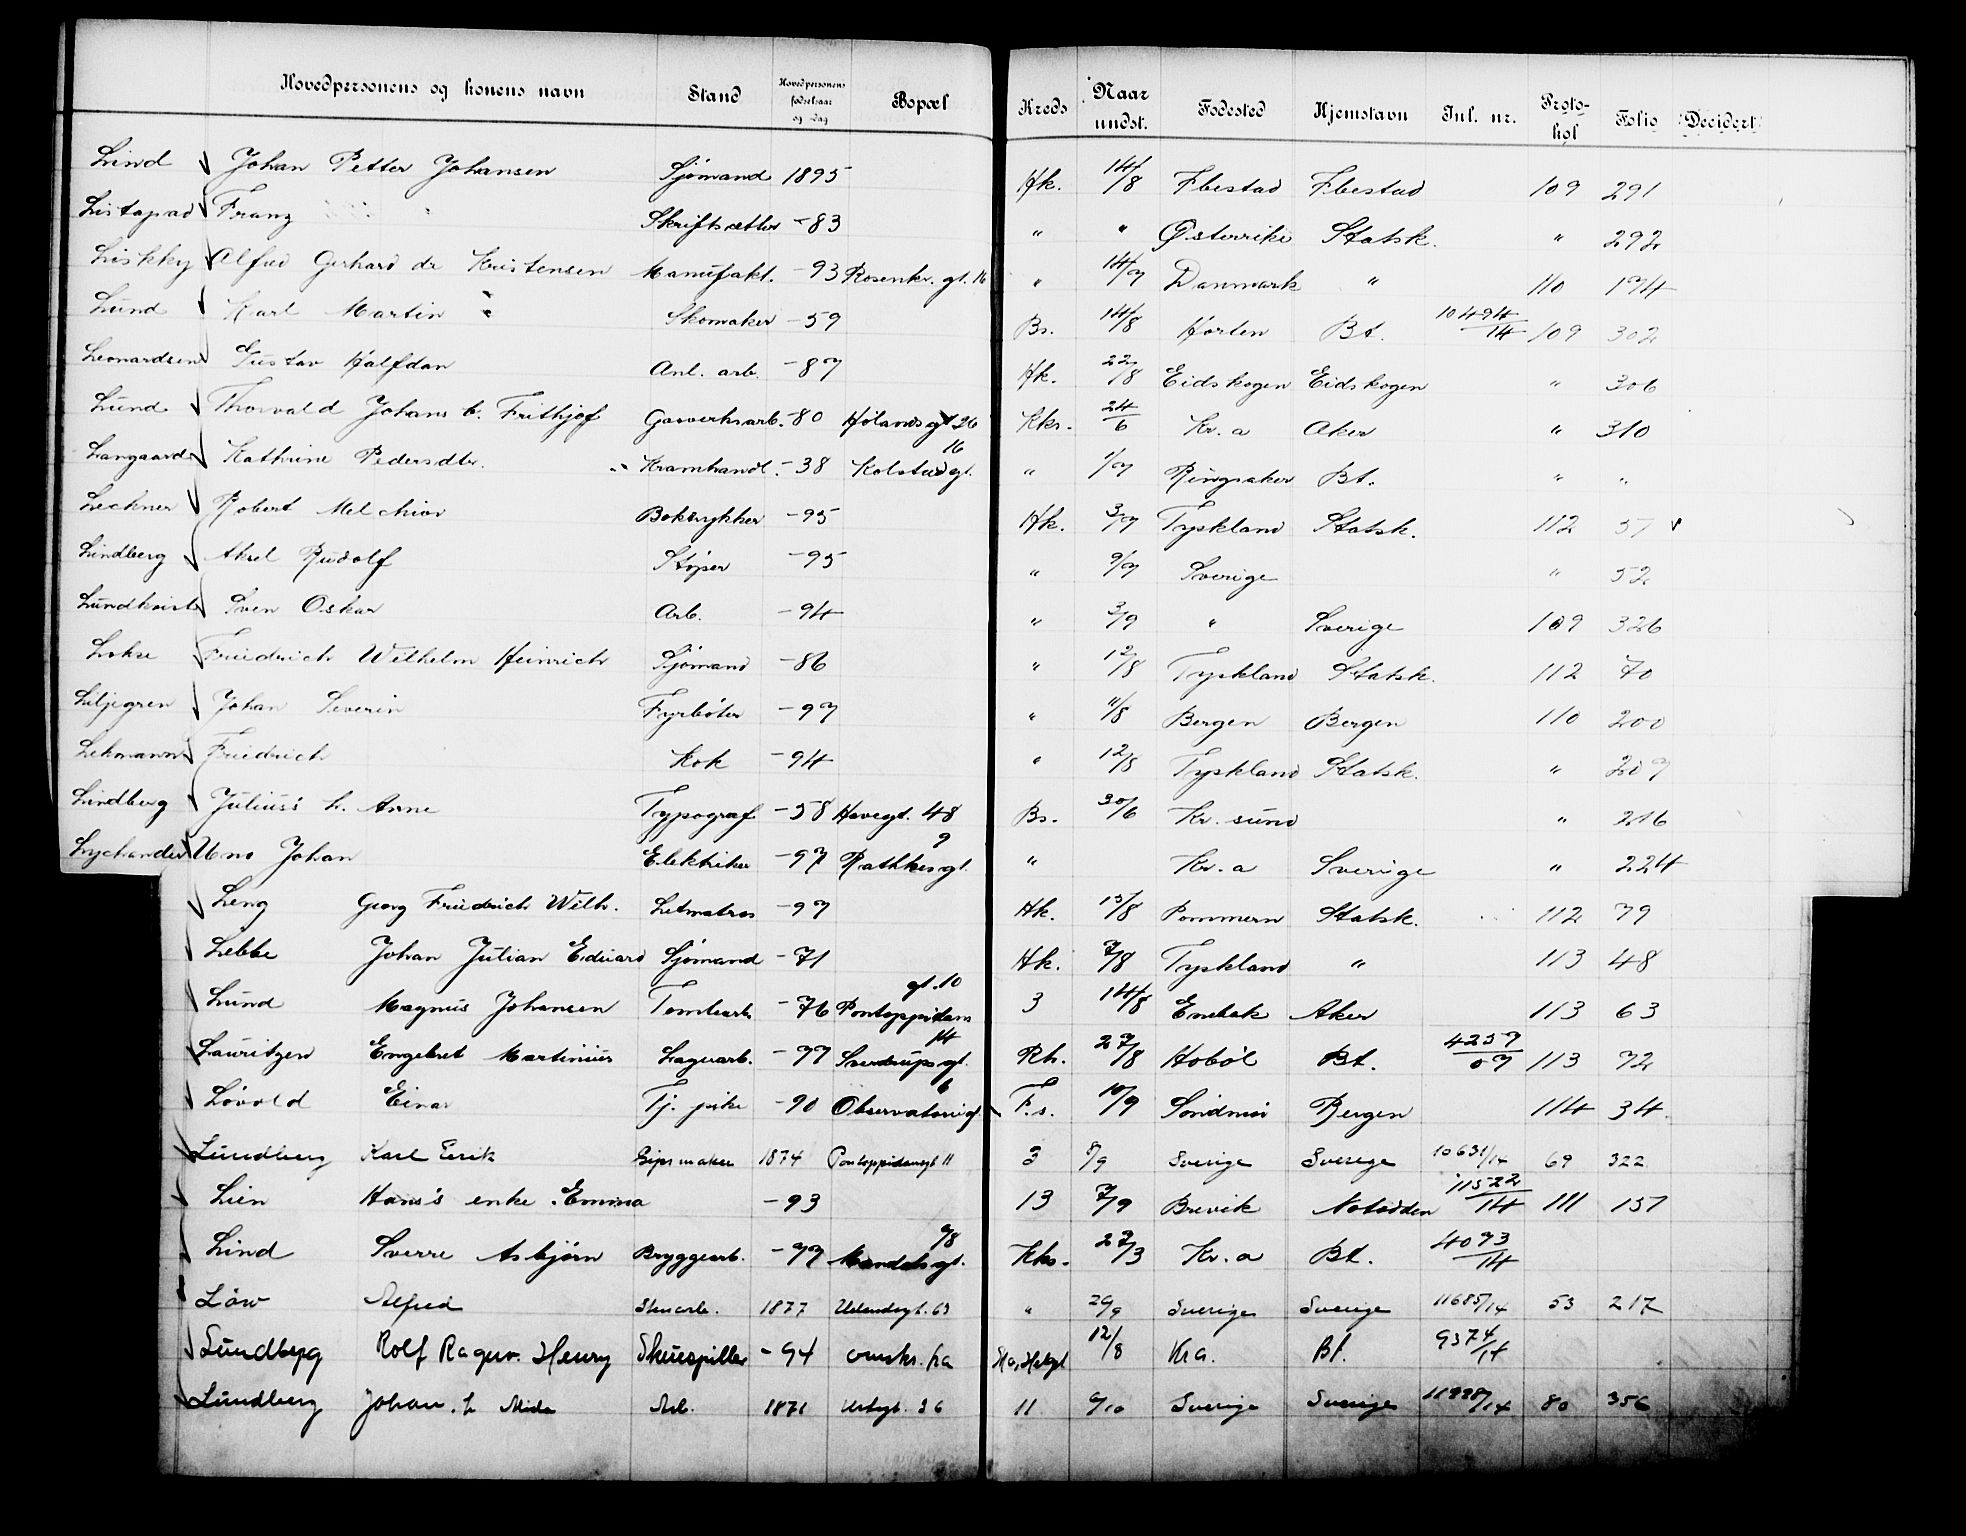 Hovedpersonens og konens navn Stand Hovedpersonens fødselsaar og dag Bopæl Kreds Naar undst. Fødested Hjemstavn Jnl. nr. Protokol Folio Decidert
Lind Johan Petter Johansen Sjömand 1895 Hk. 14/8 109 291
Listapad Franz Skriftsætter -83 " " Østerrike Statsk. " 292
Liskky Alfred Gerhard de Kristensen Manufakt. -93 Rosenkr. gt. 16 " 14/7 Danmark " 110 194
Lund Karl Martin Skomaker -59 Bs. 14/8 Horten Bt. 10494/14 109 302
Leonardsen Gustav Halfdan Anl. arb. -87 Hk. 22/8 Eidskogen Eidskogen " 306
Lund Thorvald Johans h. Frithjof Gasverksarb. -80 Hølandsgt 26 Kks. 24/6 Kr.a Aker " 310
Langaard Kathrine Pedersdtr. Kramhandl. -38 Kolstadgt. 16 " 1/7 Ringsaker Bt. " "
Lechner Robert Melchior Boktrykker -95 Hk. 3/7 Tyskland Statsk. 112 37
Lindberg Aksel Rudolf Støper -95 " 9/7 Sverige " 52
Lundkvist Sven Oskar Arb. -94 " 3/9 " Sverige 109 326
Lohse Friedrich Wilhelm Heinrich Sjömand -86 " 12/8 Tyskland Statsk. 112 70
Liljegren Johan Severin Fyrböter -97 " 11/8 Bergen Bergen 110 200
Lehmann Friedrich Kok -94 " 12/8 Tyskland Statsk. " 209
Lindberg Julius's h. Anne Typograf -58 Havegt. 48 Bs. 30/6 Kr. sund " 216
Lychander Uno Johan Elektriker -97 Rathkesgt. 9 " Kr.a Sverige " 224
Leng Georg Friedrich Wilh. Letmatros -97 Hk. 15/8 Pommern Statsk. 112 79
Lebbe Johan Julian Eduard Sjömand -71 Hk. 7/8 Tyskland " 113 48
Lund Magnus Johansen Tomtearb. -76 Pontoppidans gt. 10 3 14/8 Enebak Aker 113 63
Lauritzen Engebret Martinius Lagerarb. -77 Sverdrupsgt. 14 Rh. 27/8 Hobøl Bt. 4259/07 113 72
Lövold Einar Tj. pike -90 Observatoriegt. 6 F.s. 10/9 Söndmör Bergen 114 34
Lundberg Karl Erik Gipsmaker 1874 Pontoppidansgt 11 3 8/9 Sverige Sverige 10631/14 69 322
Lien Hans's enke Emma -93 13 7/9 Brevik Notodden 11522/14 111 157
Lind Sverre Asbjørn Bryggearb. -77 Mandalsgt. 7/8 Kks. 27/3 Kr.a Bt. 4093/14
Löw Alfred Stenarb. 1877 Uelandsgt. 63 " 26/9 Sverige Sverige 11685/14 53 217
Lundberg Rolf Ragnv. Henry Skuespiller -94 omstr. fra 12/8 Kra. Bt. 9374/14
Lundberg Johan. h Arb. 1871 Urtegt. 36 11 6/10 Sverige Sverige 11998/14 80 356